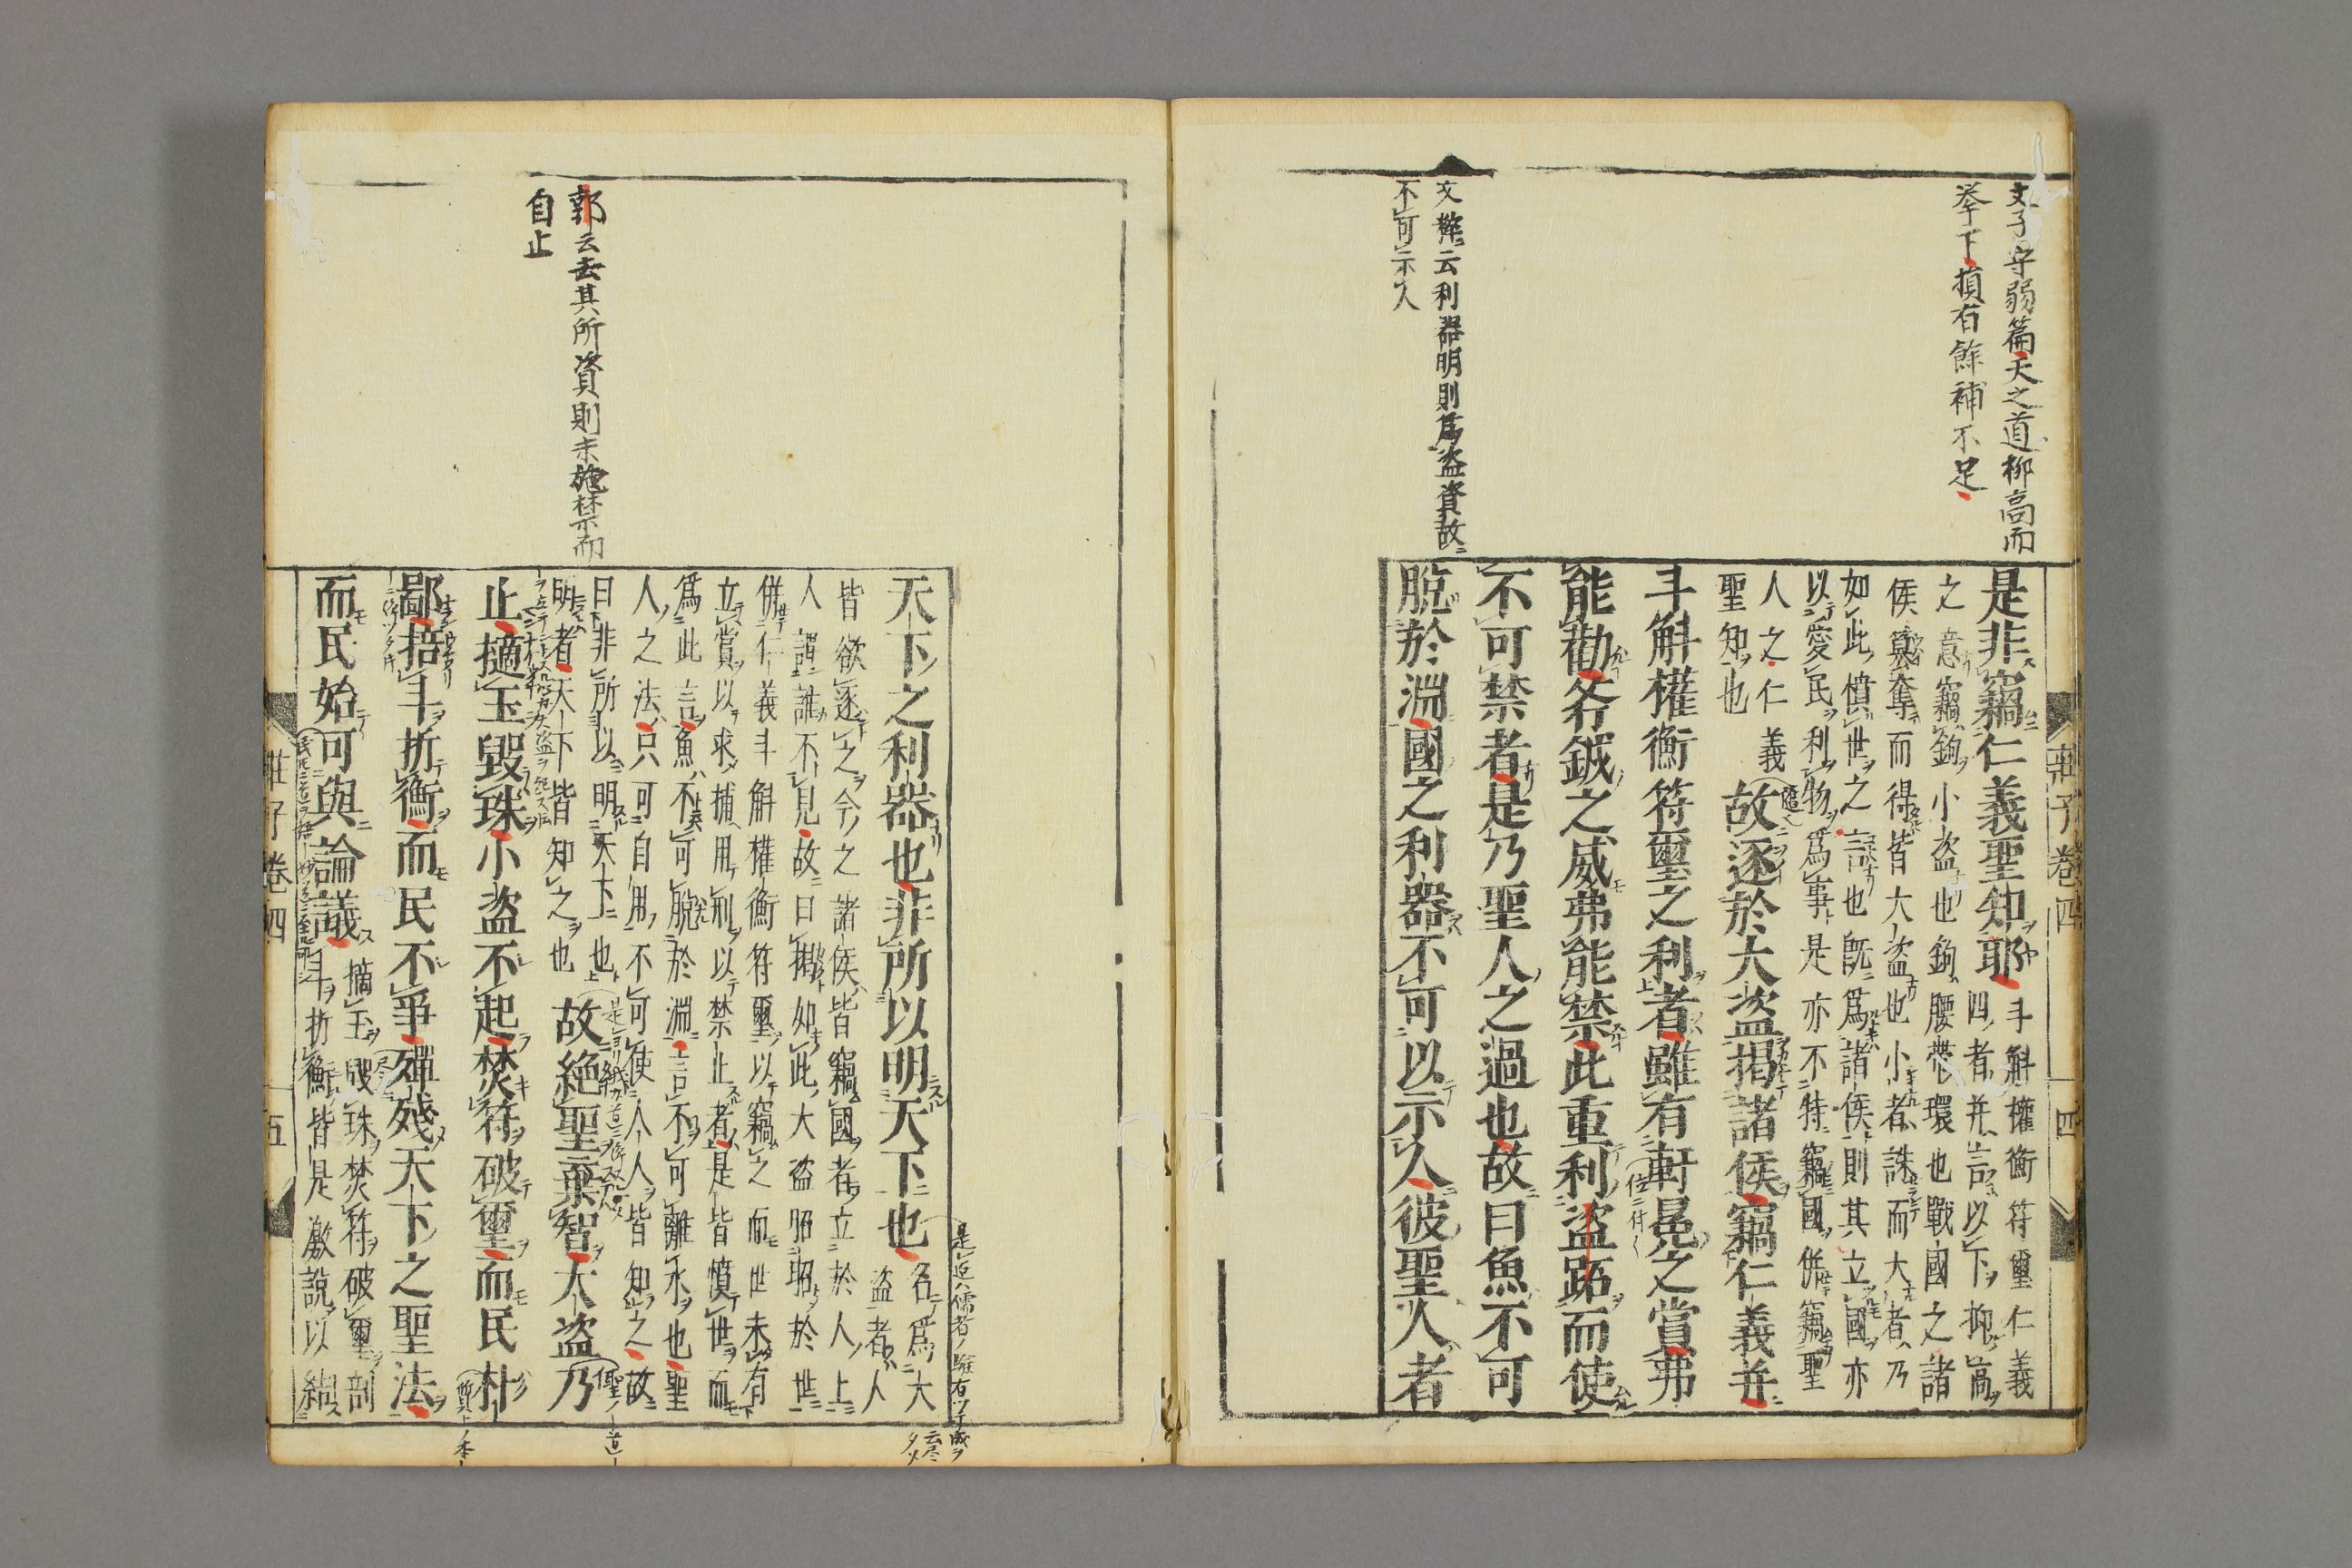 文子守弱篇天之道抑高而
挙下損有餘補不足
文弊云利器明則爲盗資故
不可示人
莊子卷四
四
是非竊仁義聖知耶
斗斛權衡符璽仁義
四者并言以下抑高
之意竊鉤小盗也鉤腰帶環也戰國之諸
侯篡奪而得皆大盗也小者誅而大者乃
如此憤世之言也既爲諸侯則其立國亦
以愛民利物爲事是亦不特竊國併竊聖
人之仁義
聖知也
故逐於大盗揭諸侯竊仁義并
斗斛權衡符璽之利者雖有軒冕之賞弗
能勸斧鉞之威弗能禁此重利盗跖而使
不可禁者是乃聖人之過也故曰魚不可
脫於淵國之利器不可以示人彼聖人者
郭云去其所資則未施禁而
自止
天下之利器也非所以明天下也
名爲大
盗者人
皆欲逐之今之諸侯皆竊國者立於人上
人謂誰不見故曰揭如此大盗昭昭於世
併仁義斗斛權衡符璽以竊之而世未有
立賞以求捕用刑以禁止者是皆憤世而
爲此言魚不可脫於淵言不可離水也聖
人之法只可自用不可使人人皆知之故
曰非所以明天下也
明者天下皆知之也
故絶聖棄智大盗乃
止擿玉毀珠小盗不起焚符破璽而民朴
鄙掊斗折衡而民不爭殫殘天下之聖法
而民始可與論議
擿玉毀珠焚符破璽剖
斗折衡皆是激說以結
莊子卷四
五